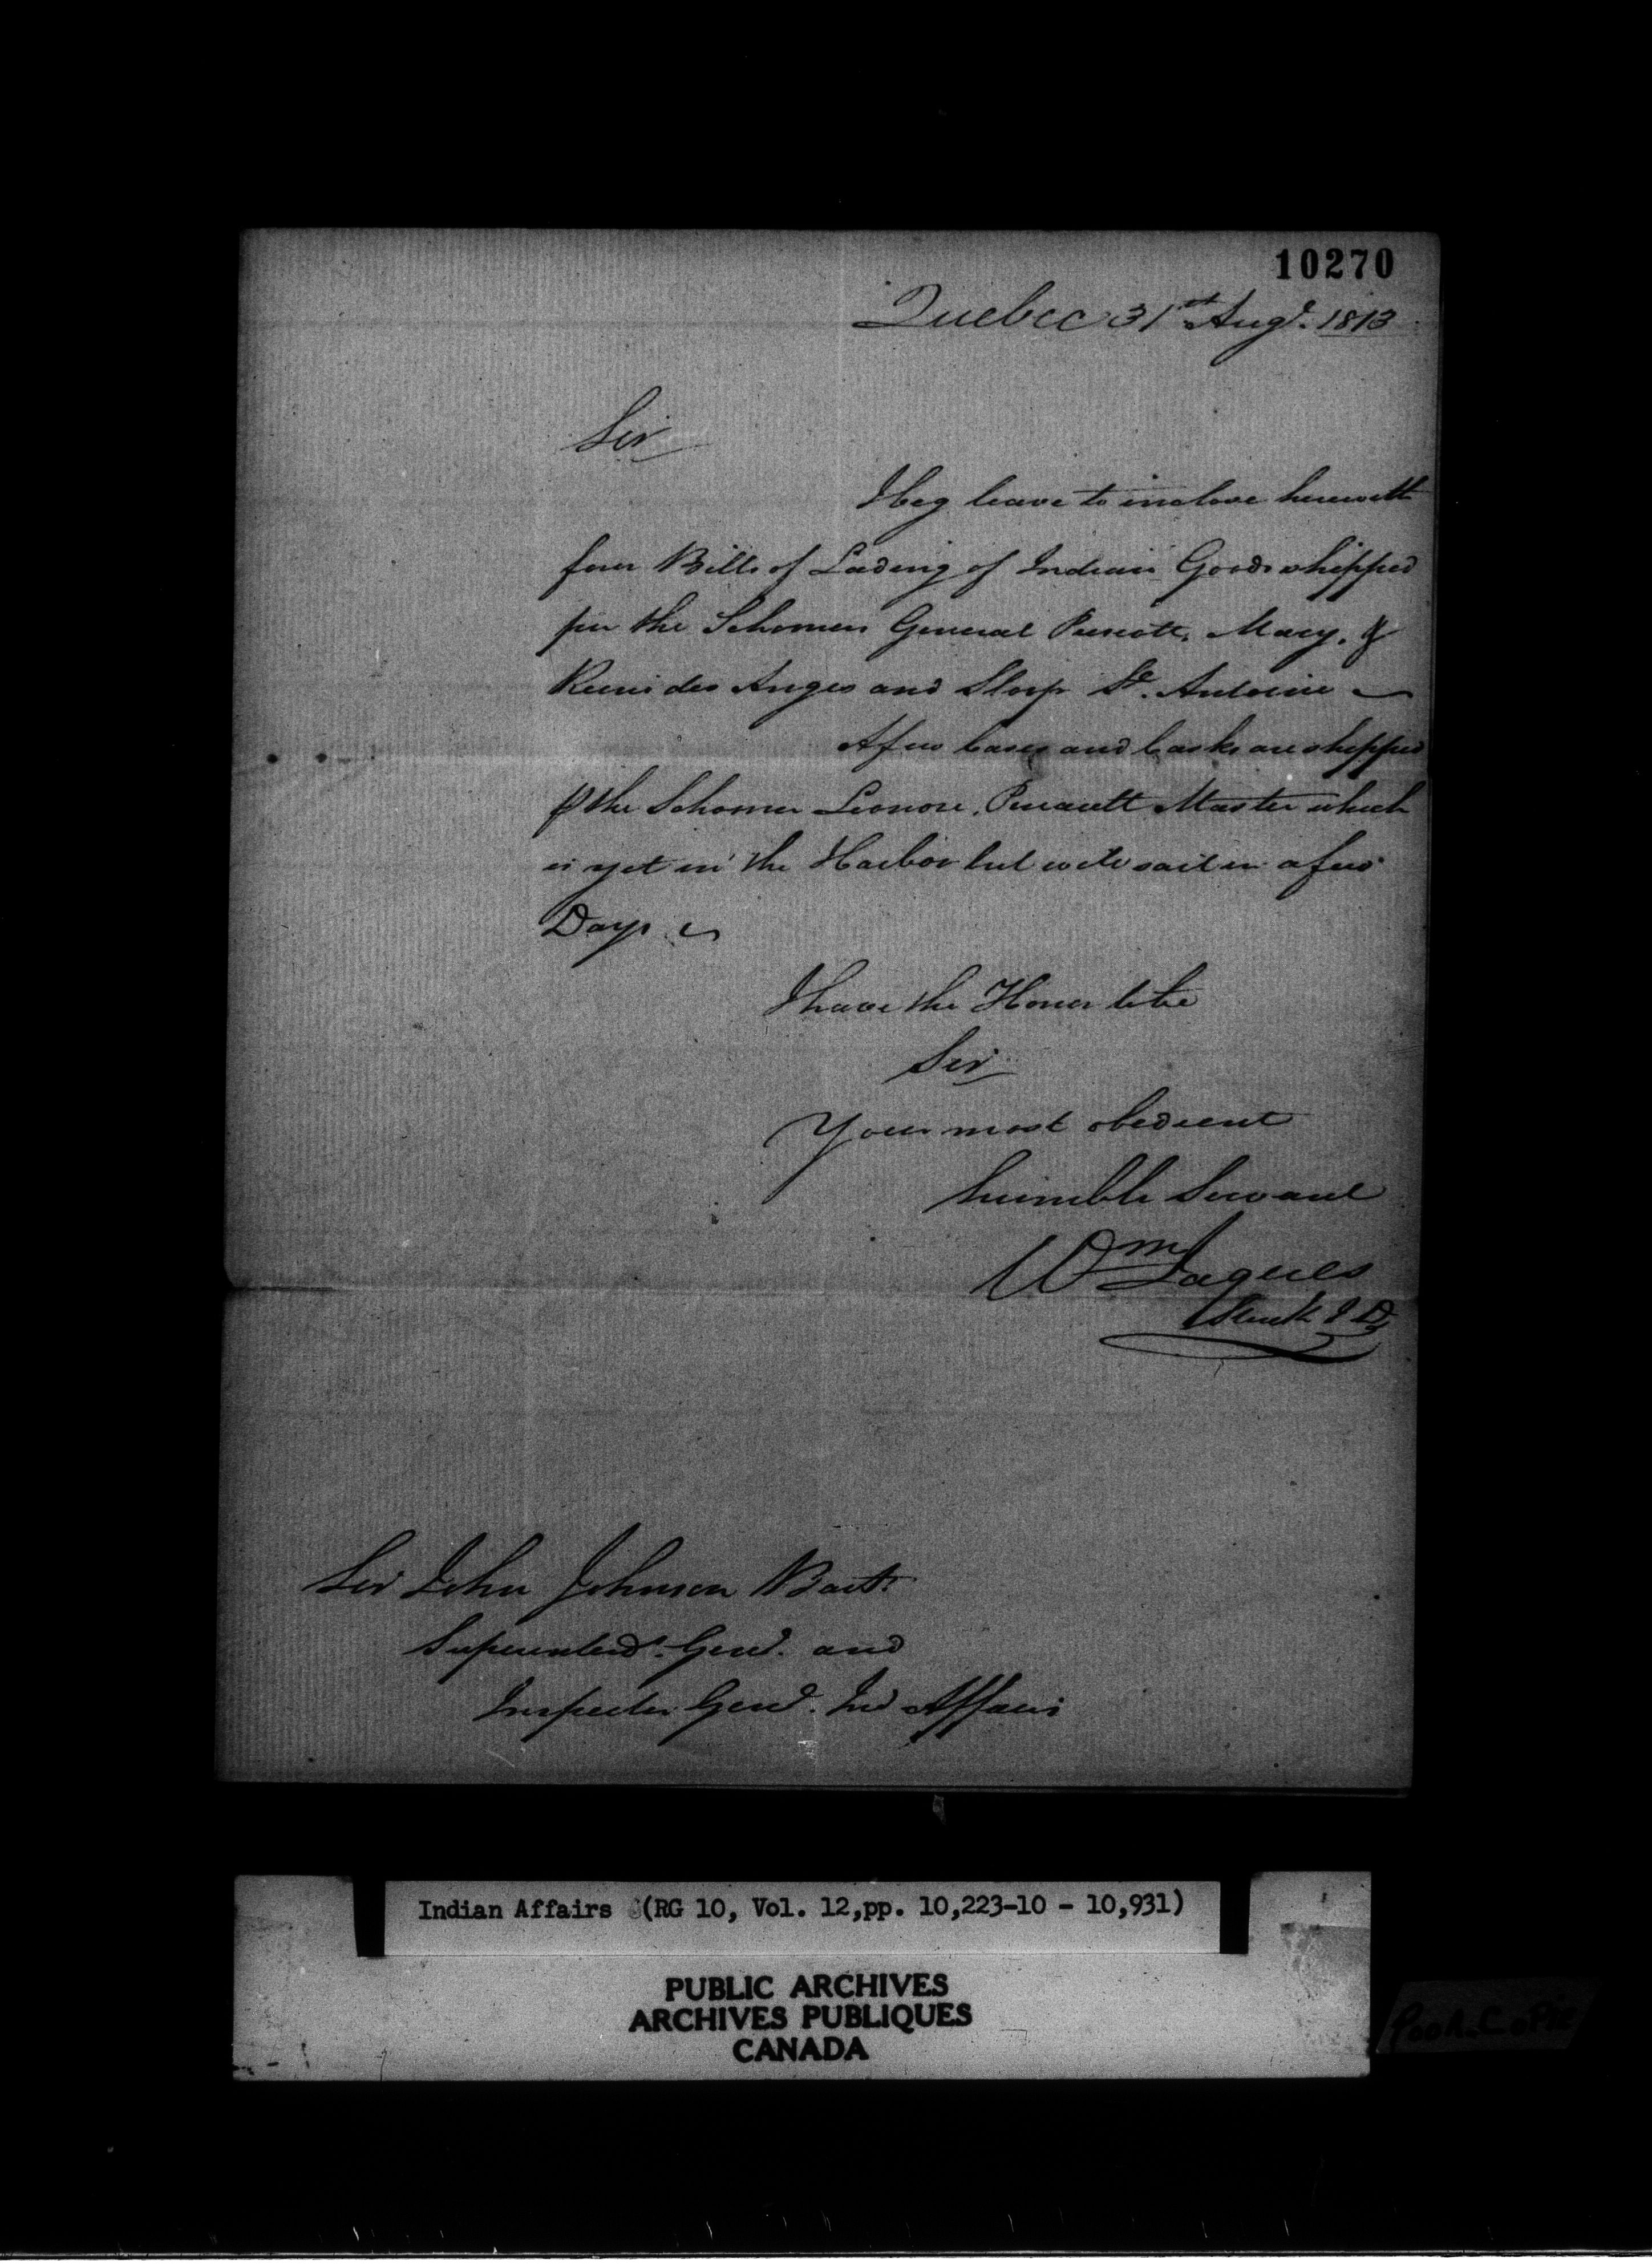 10270
Quebec 31st Augt. 1813
Sir
I beg leave to inclose herewith
four Bills of Lading of Indian Goods shipped
per the Schooners General Prescott, Mary, &
Reine des Anges and Sloop St. Antoine
A few Cases and Casks are shipped
P the Schooner Leonore, Perrault Master which
is yet in the Harbor but will sail in a few
Days
I have the Honor to be
Sir
Your most obedient
humble Servant
Wm Jaques
Clerk I D
Sir John Johnson Bart.
Superintendt. Genl. and
Inspector Genl. Ind Affairs
Indian Affairs (RG 10, Vol. 12, pp. 10,223-10 - 10,931)
PUBLIC ARCHIVES
ARCHIVES PUBLIQUES
CANADA
Poor Copie